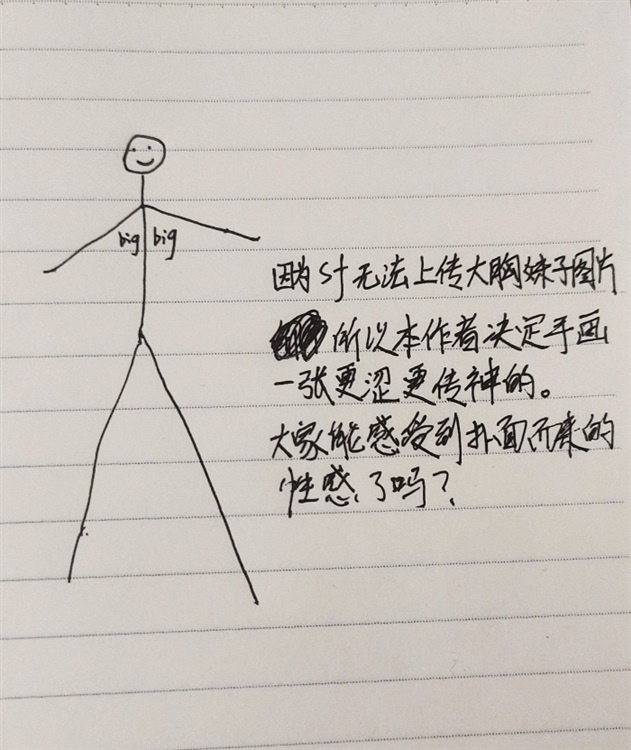 big big
因为sf无法上传大胸妹子图片
所以本作者决定手画
一张更涩更传神的。
大家能感受到扑面而来的
性感了吗？